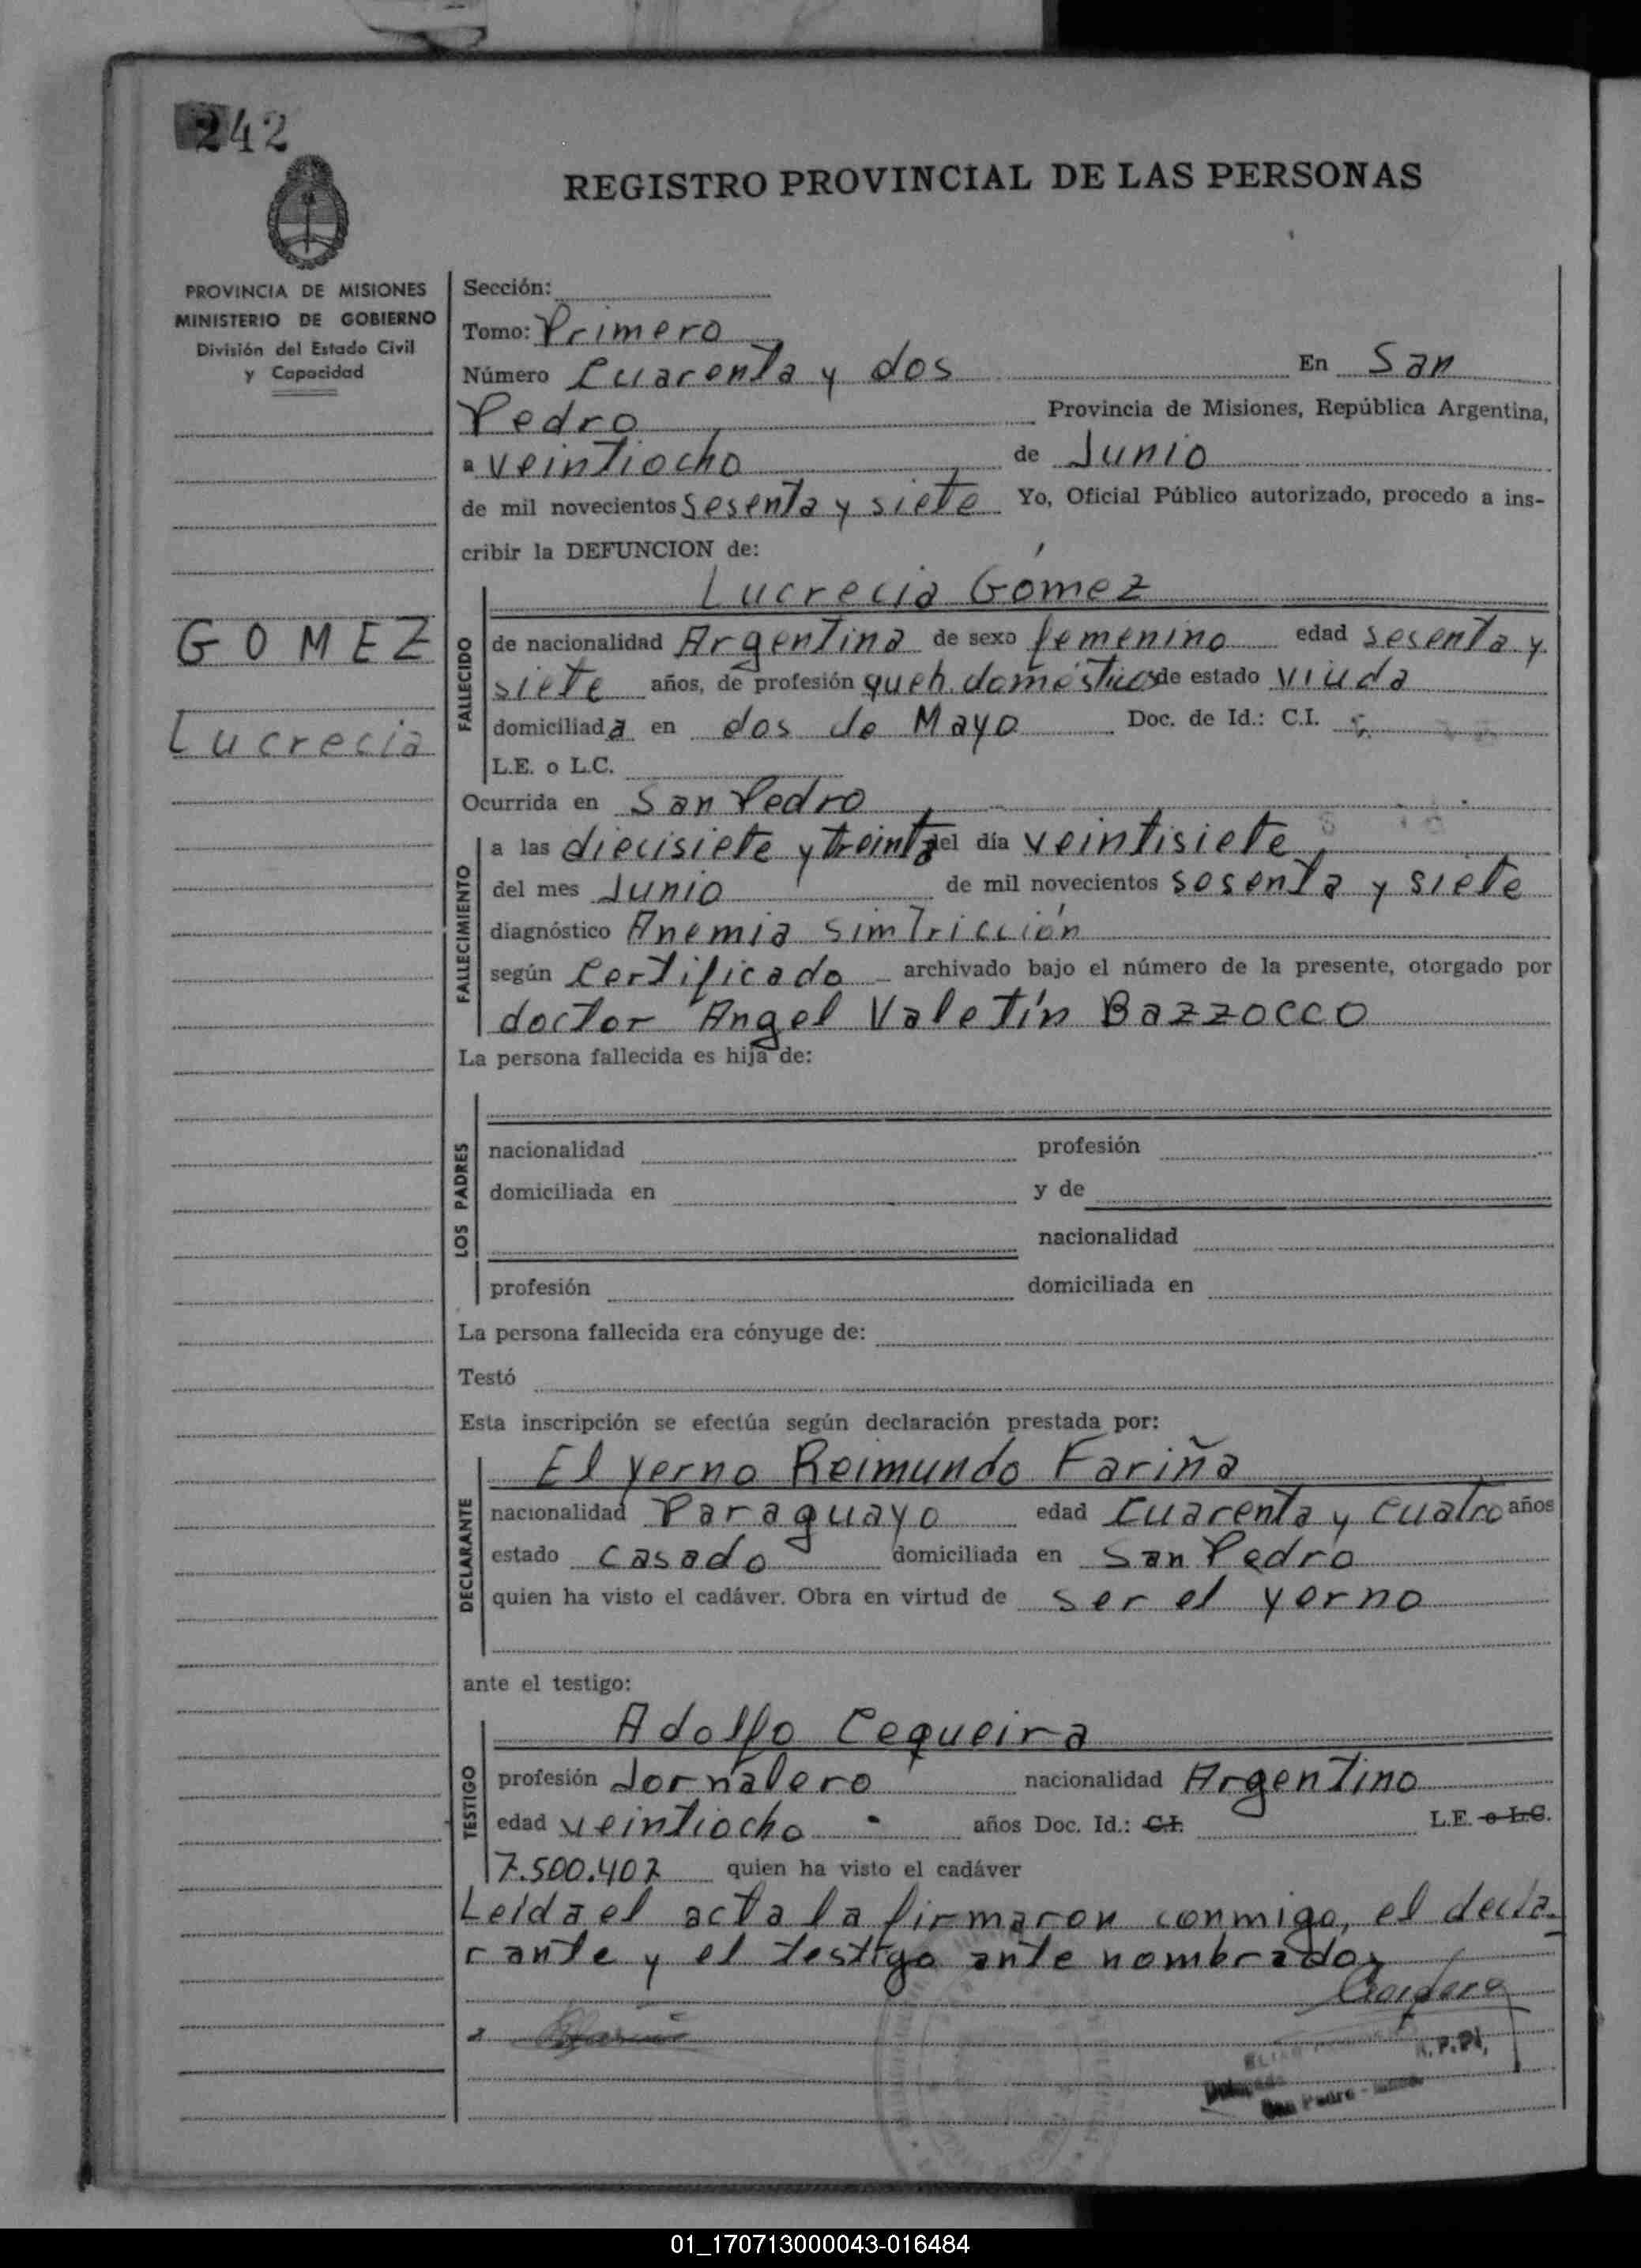 242
REGISTRO PROVINCIAL DE LAS PERSONAS
PROVINCIA DE MISIONES
MINISTERIO DE GOBIERNO
División del Estado Civil
y Capacidad
GOMEZ
Lucrecia
Sección:
Tomo: Primero
Número Cuarenta y dos En San
Pedro Provincia de Misiones, República Argentina,
a veintiocho de Junio
de mil novecientos sesenta y siete Yo, Oficial Público autorizado, procedo a ins-
cribir la DEFUNCION de:
Lucrecia Gómez
FALLECIDO
de nacionalidad Argentina de sexo femenino edad sesenta y
siete años, de profesión queh. domésticos de estado viuda
domiciliada en dos de Mayo Doc. de Id.: C.I.
L.E. o L.C.
Ocurrida en San Pedro
FALLECIMIENTO
a las diecisiete y treinta del día veintisiete
del mes Junio de mil novecientos sesenta y siete
diagnóstico Anemia simtricción
según Certificado archivado bajo el número de la presente, otorgado por
doctor Angel Valetín Bazzocco
La persona fallecida es hija de:
LOS PADRES
nacionalidad profesión
domiciliada en y de
nacionalidad
profesión domiciliada en
La persona fallecida era cónyuge de:
Testó
Esta inscripción se efectúa según declaración prestada por:
DECLARANTE
El yerno Reimundo Fariña
nacionalidad Paraguayo edad cuarenta y cuatro años
estado casado domiciliada en San Pedro
quien ha visto el cadáver. Obra en virtud de ser el yerno
ante el testigo:
TESTIGO
Adolfo Cequeira
profesión Jornalero nacionalidad Argentino
edad veintiocho años Doc. Id.: C.I. L.E. o L.C.
7.500.407 quien ha visto el cadáver
Leída el acta la firmaron conmigo, el decla-
rante y el testigo ante nombrado,
San Pedro
01_170713000043-016484